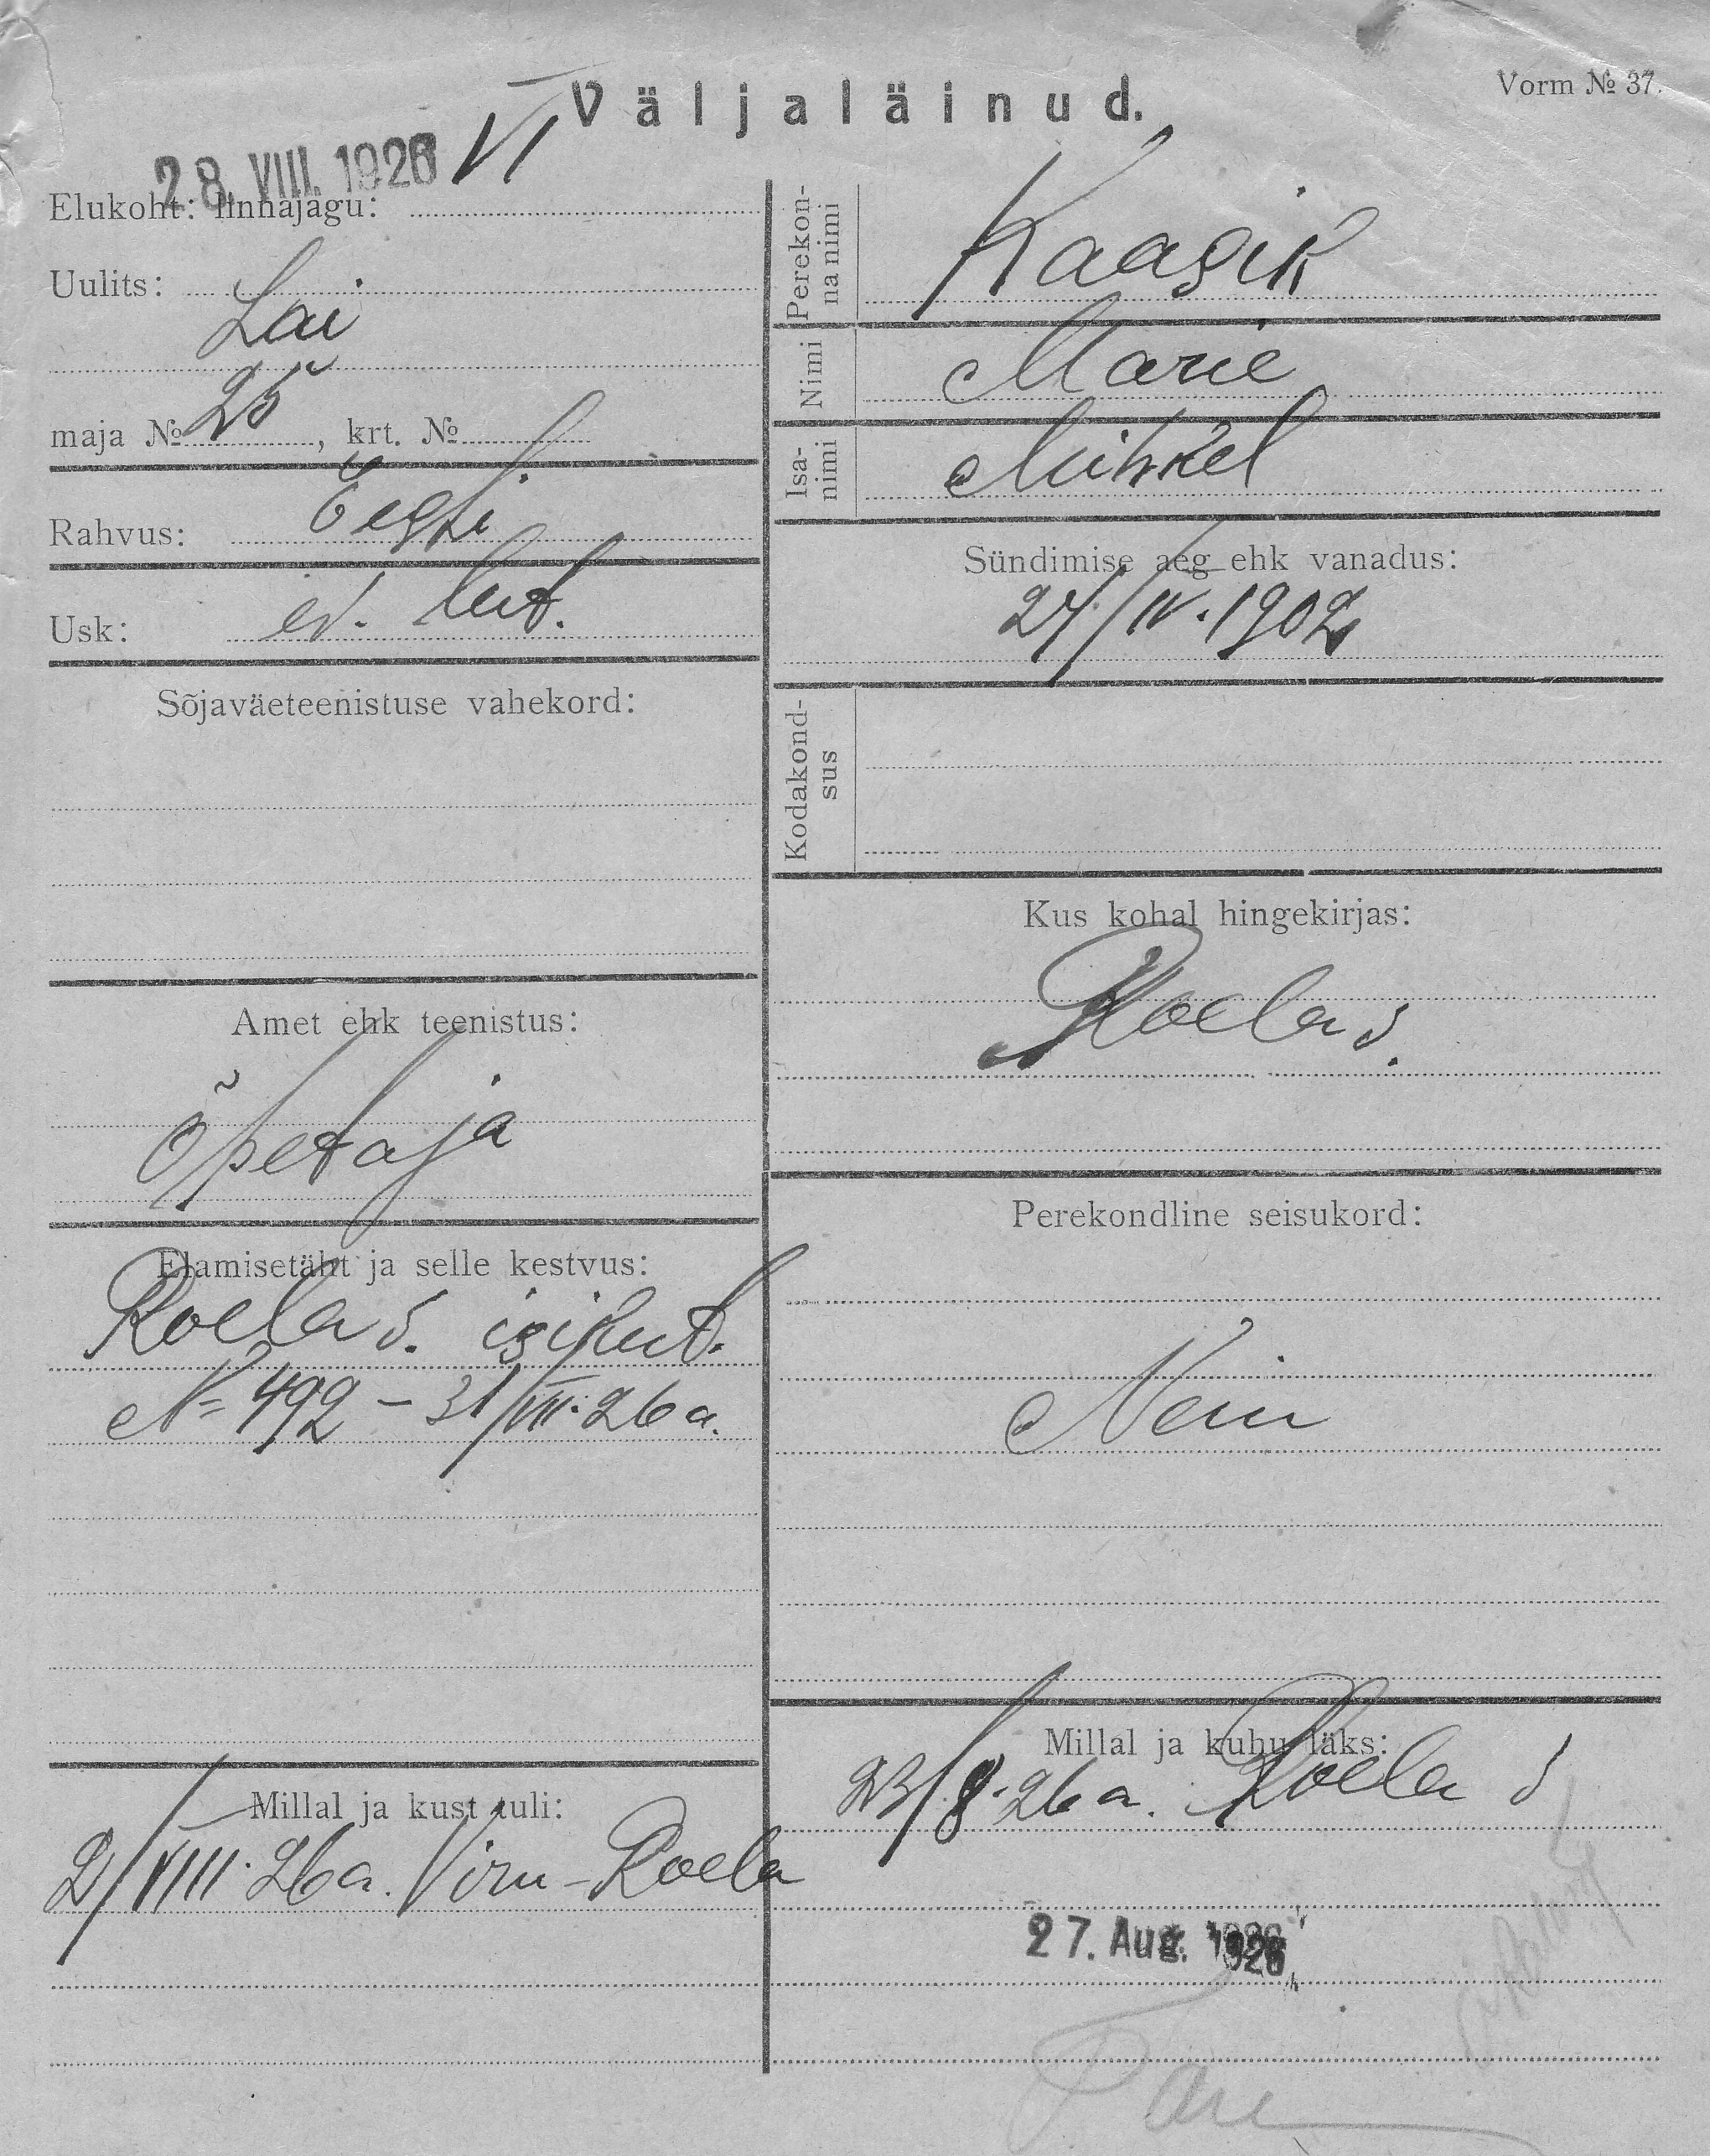 Vorm № 37.
Väljaläinud.
28. VIII. 1926 VI
Elukoht: linnajagu:
Uulits:
Lai
maja № 25, krt. №
Rahvus: Eesti
Usk: ev. lut.
Sõjaväeteenistuse vahekord:
Amet ehk teenistus:
Õpetaja
Elamisetäht ja selle kestvus:
Roela v. isikut.
№ 492 – 31/VII. 26 a.
Millal ja kust tuli:
2/VIII. 26 a. Viru-Roela
Perekon-
na nimi
Kaasik
Nimi Marie
Isa-
nimi
Mihkel
Sündimise aeg ehk vanadus:
24/IV. 1902
Kodakond-
sus
Kus kohal hingekirjas:
Roela v.
Perekondline seisukord:
Nein
Millal ja kuhu läks:
23/8. 26 a. Roela v
27. Aug. 1926